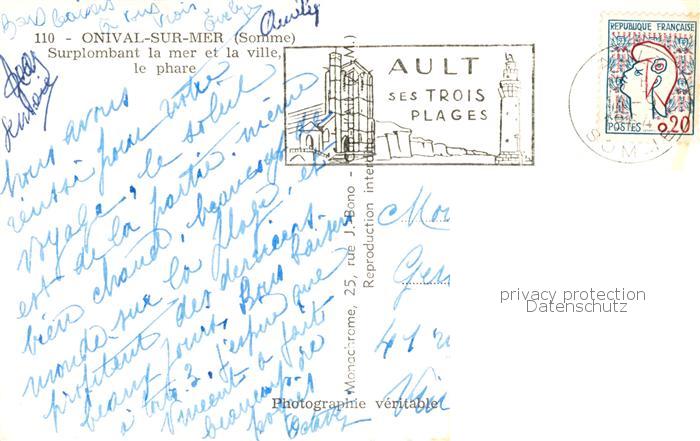 Bons baisers
à tous trois
110 - ONIVAL-SUR-MER (Somme)
Surplombant la mer et la ville,
le phare
AULT
SES TROIS
PLAGES
REPUBLIQUE FRANÇAISE
POSTES 0,20
SOMME
Nous avons
réussi pour notre
voyage, le soleil
est de la partie même
bien chaud, beaucoup de
monde sur la plage, et
profitent des derniers
beaux jours. Bons baisers
à tous 3, j'espère que
Vincent a fait
beaucoup de
Monachrome, 25, rue J. Bono
Reproduction interdite
Photographie véritable
Mon
Ges
41 r
privacy protection
Datenschutz